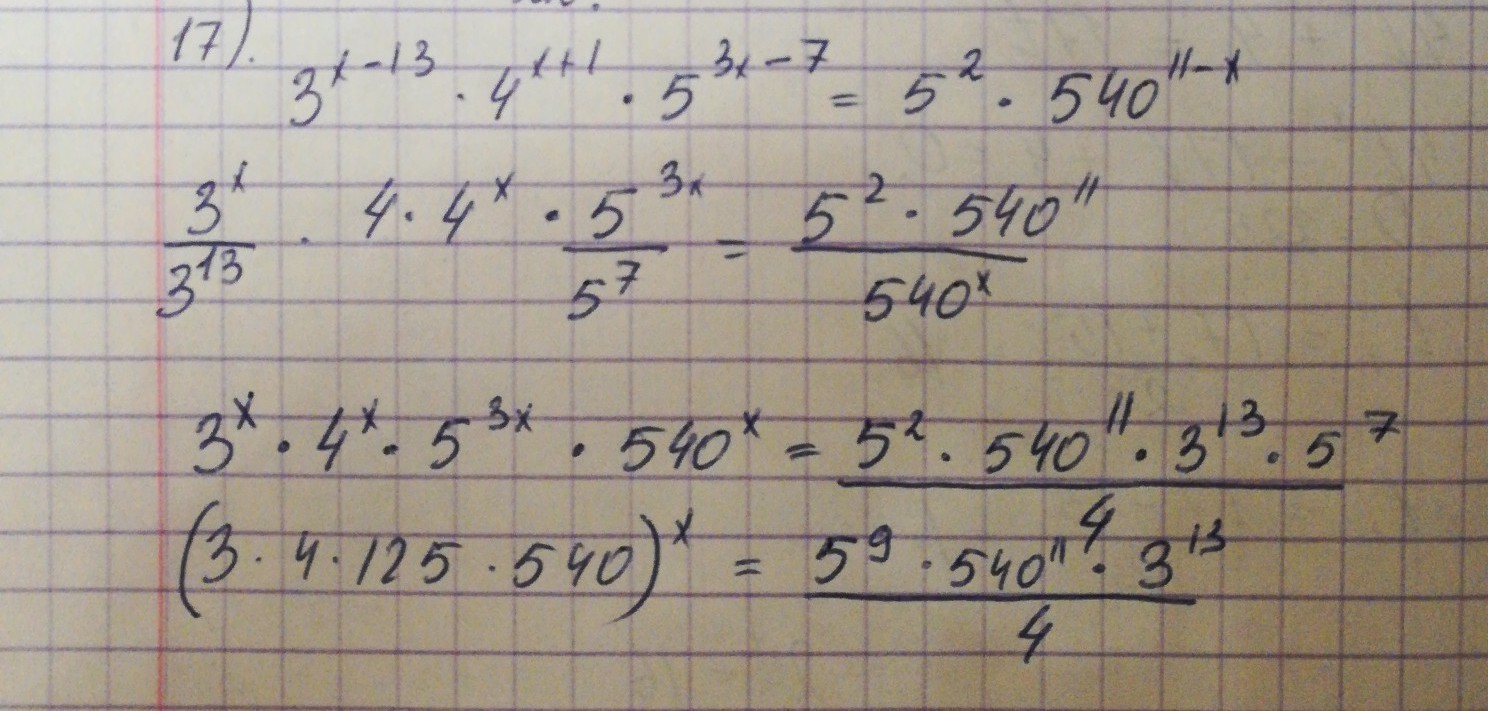 17). 3^{x-13} · 4^{x+1} · 5^{3x-7} = 5^2 · 540^{11-x}
\frac{3^x}{3^{13}} · 4 · 4^x · \frac{5^{3x}}{5^7} = \frac{5^2 · 540^{11}}{540^x}
3^x · 4^x · 5^{3x} · 540^x = \frac{5^2 · 540^{11} · 3^{13} · 5^7}{4}
(3 · 4 · 125 · 540)^x = \frac{5^9 · 540^{11} · 3^{13}}{4}